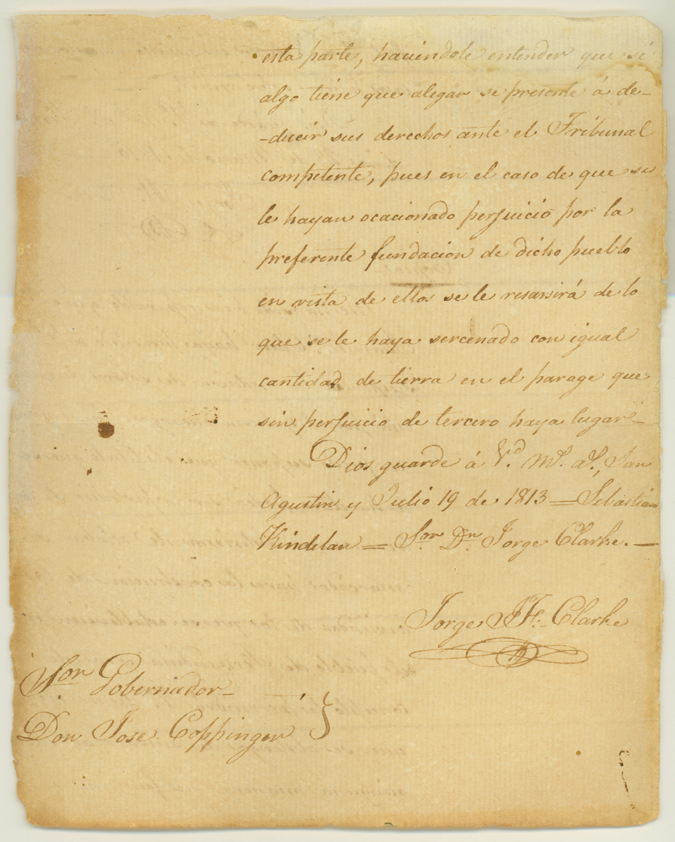 esta parte, haciendole entender que si
algo tiene que alegar se presente á de-
-ducir sus derechos ante el Tribunal
competente, pues en el caso de que se
le hayan ocacionado perjuicio por la
preferente fundacion de dicho pueblo
en vista de ellos se le resarsirá de lo
que se le haya sercenado con igual
cantidad de tierra en el parage que
sin perjuicio de tercero haya lugar—
Dios guarde á V.d m.s a.s, San
Agustin y Julio 19 de 1813 — Sebastian
Kindelan — S.or D.n Jorge Clarke. —
Jorge J. F. Clarke
S.or Gobernador—
Don Jose Coppinger